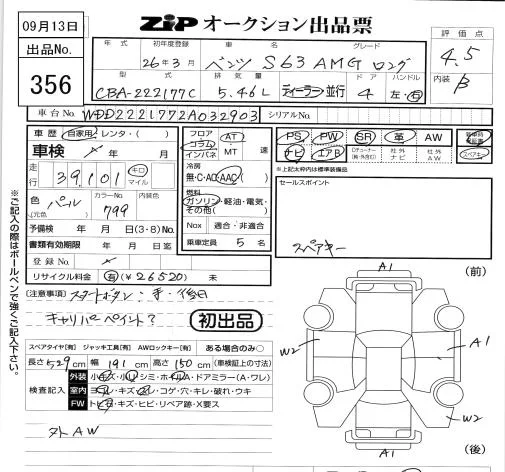 09月13日
ZiP オークション出品票
出品No.
356
評価点
4.5
内装 B
年式 初年度登録 車名 グレード
26年3月 ベンツ S63 AMG ロング
型式 排気量 ドア ハンドル
CBA-222177C 5.46L ディーラー 並行 4 左・右
車台No. WDD2221772A032903 シリアルNo.
車歴 自家用・レンタ・( )
車検 年 月
走行 39,101 キロ マイル
色 (元色) パール カラーNo. 799 内装色
予備検 年 月 日(3・8)No.
書類有効期限 年 月 日
登録No.
リサイクル料金 有(¥26520) 未
フロア コラム インパネ AT MT 速
冷房 無・C・AC・AAC( )
燃料 ガソリン・軽油・電気・その他( )
Nox 適合・非適合
乗車定員 5 名
PS PW SR 革 AW
ナビ エアB Dチューナー(純・外含む) 社外ナビ 社外AW スペアキー
*上記太枠内は標準装備品
セールスポイント
スペアキー
(注意事項) スタートボタン・手・後日
キャリパーペイント?
初出品
スペアタイヤ[有] ジャッキ工具[有] AWロックキー[有] ある場合のみ○
長さ 529(cm) 幅 191(cm) 高さ 150(cm) (車検証上の寸法)
検査記入
外装 小キズ・小凹・シミ・ホイルA・ドアミラー(A・ワレ)
室内 ヨゴレ・キズ・スレ・コゲ・穴・キレ・破れ・ウキ
FW トビ石・キズ・ヒビ・リペア跡・X要ス
外AW
A1
(前)
W2
A1
W2
A1
(後)
※ご記入の際はボールペンで強くご記入下さい。